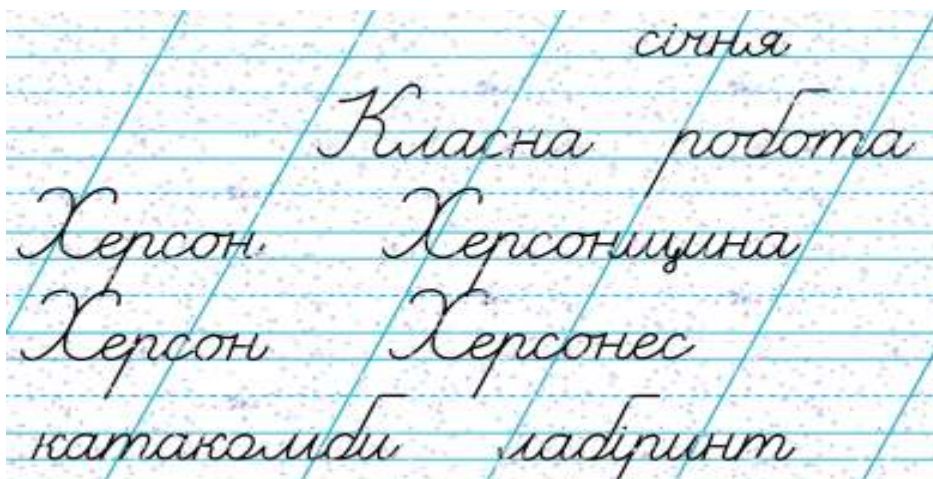 січня
Класна робота
Херсон Херсонщина
Херсон Херсонес
катакомби лабіринт